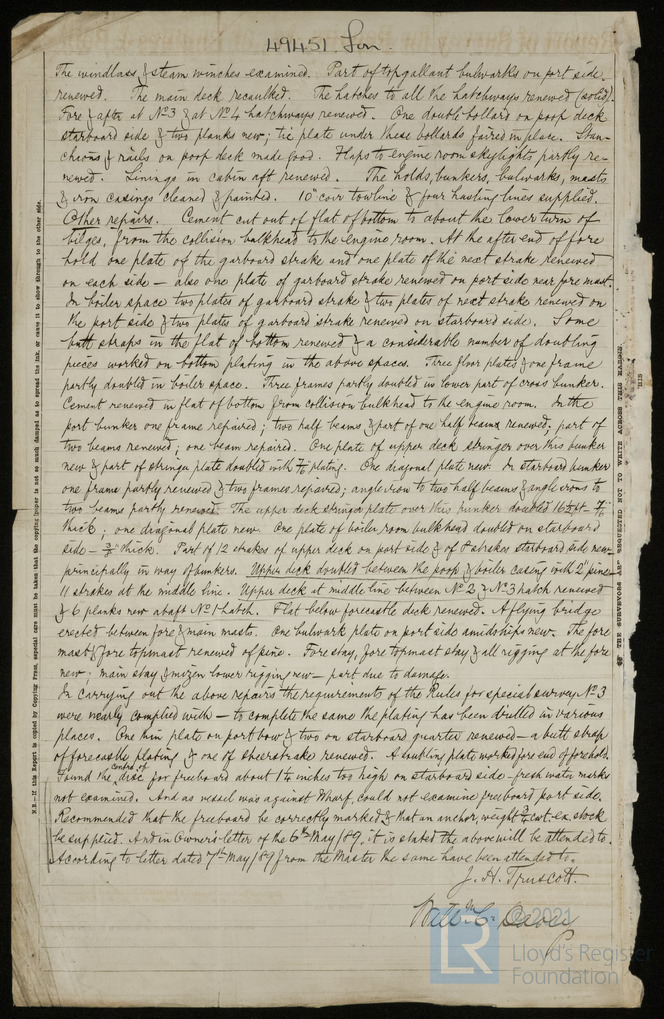 49451 Lon.
The windlass & steam winches examined. Part of topgallant bulwarks on port side
renewed. The main deck recaulked. The hatches to all the hatchways renewed (solid).
Fore & after at No 3 & at No 4 hatchways renewed. One double bollard on poop deck
starboard side & two planks new; tie plate under these bollards faired in place. Stan-
chions & rails on poop deck made good. Flaps to engine room skylights partly re-
newed. Linings in cabin aft renewed. The holds, bunkers, bulwarks, masts
& iron casings cleaned & painted. 10" coir towline & four hauling lines supplied.
Other repairs. Cement cut out of flat of bottom to about the lower turn of
bilges, from the collision bulkhead to the engine room. At the after end of fore
hold one plate of the garboard strake and one plate of the next strake renewed
on each side — also one plate of garboard strake renewed on port side near fore mast.
In boiler space two plates of garboard strake & two plates of next strake renewed on
the port side & two plates of garboard strake renewed on starboard side. Some
butt straps in the flat of bottom renewed & a considerable number of doubling
pieces worked on bottom plating in the above spaces. Three floor plates & one frame
partly doubled in boiler space. Three frames partly doubled in lower part of cross bunker.
Cement renewed in flat of bottom from collision bulkhead to the engine room. In the
port bunker one frame repaired; two half beams & part of one half beam renewed; part of
two beams renewed; one beam repaired. One plate of upper deck stringer over this bunker
new & part of stringer plate doubled with plating. One diagonal plate new. In starboard bunker
one frame partly renewed & two frames repaired; angle iron to two half beams & angle irons to
two beams partly renewed. The upper deck stringer plate over this bunker doubled
thick; one diagonal plate new. One plate of boiler room bulkhead doubled on starboard
side — thick. Part of 12 strakes of upper deck on port side & of 8 strakes starboard side new
principally in way of bunkers. Upper deck doubled between the poop & boiler casing with 2" pine
11 strakes at the middle line. Upper deck at middle line between No 2 & No 3 hatch renewed
& 6 planks new abaft No 1 hatch. Flat below forecastle deck renewed. A flying bridge
erected between fore & main masts. One bulwark plate on port side amidships new. The fore
mast & fore topmast renewed of pine. Fore stay, fore topmast stay & all rigging at the fore
new; main stay & mizen lower rigging new — part due to damage.
In carrying out the above repairs the requirements of the Rules for special survey No 3
were nearly complied with — to complete the same the plating has been drilled in various
places. One thin plate on port bow & two on starboard quarter renewed — a butt strap
of forecastle plating & one of sheerstrake renewed. A doubling plate worked fore end of forehold.
Found the centre of disc for freeboard about 1¼ inches too high on starboard side — fresh water marks
not examined. And as vessel was against Wharf, could not examine freeboard port side.
Recommended that the freeboard be correctly marked & that an anchor, weight cwt. ex. stock
be supplied. And in Owner's letter of the 6th May/89, it is stated the above will be attended to.
According to letter dated 7th May/89 from the Master the same have been attended to.
J. H. Truscott.
Willm C.
© 2021
LR
Lloyd's Register
Foundation
N.B.—If this Report is copied by Copying Press, especial care must be taken that the copying paper is not so much damped as to spread the ink, or cause it to show through to the other side.
OF THE SURVEYORS ARE REQUESTED NOT TO WRITE ACROSS THIS MARGIN.